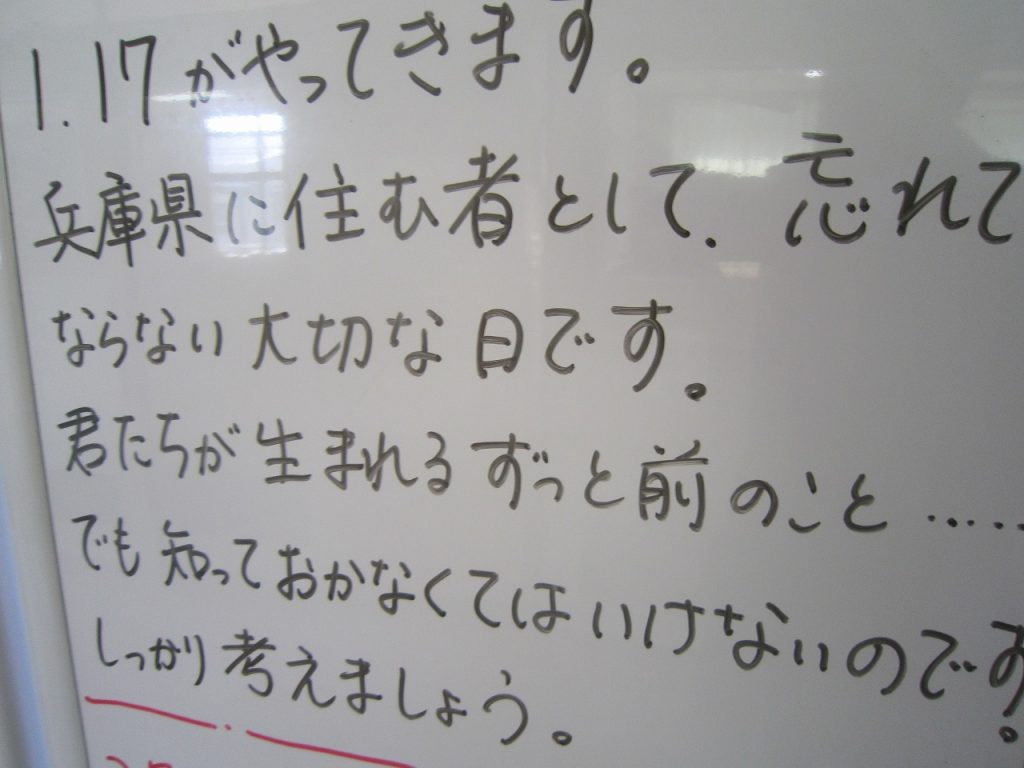 1.17がやってきます。
兵庫県に住む者として、忘れて
ならない大切な日です。
君たちが生まれるずっと前のこと……
でも知っておかなくてはいけないのです。
しっかり考えましょう。